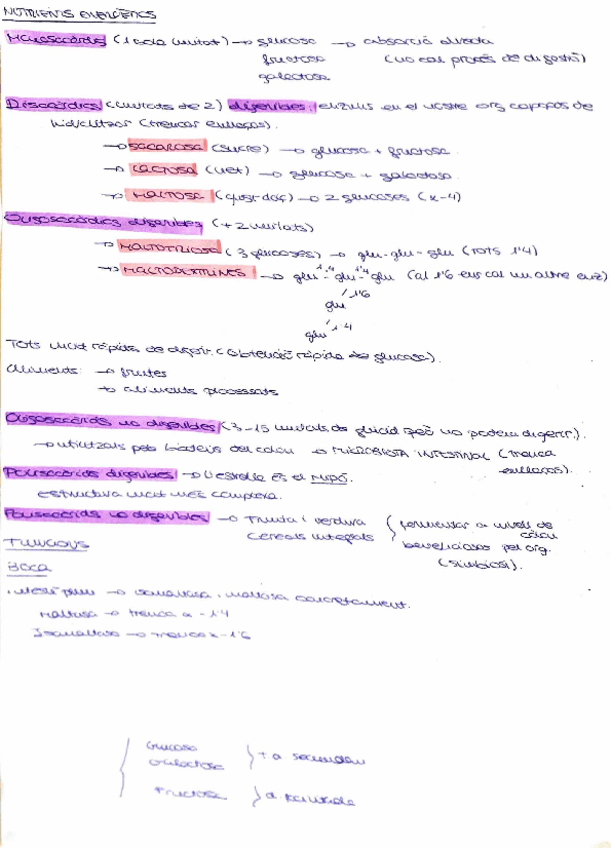 NUTRIENTS ENERGÈTICS
Monosacàrids (1 sola unitat) → glucosa → absorció directa
fructosa (no cal procés de digestió)
galactosa
Disacàrids (unitats de 2) digeribles, enzims en el nostre org capaços de
hidrolitzar (trencar enllaços).
→ SACAROSA (sucre) → glucosa + fructosa
→ LACTOSA (llet) → glucosa + galactosa
→ MALTOSA → 2 glucoses (α-4)
Oligosacàrids digeribles (+2 unitats)
→ MALTOTRIOSA (3 glucoses) → glu-glu-glu (TOTS 1'4)
→ MALTODEXTRINES → glu-1'4-glu-1'4-glu (al 1'6 ens cal un altre enz)
/1'6
glu
/1'4
glu
Tots molt ràpids de digerir. (obtenció ràpida de glucosa).
Aliments: → fruites
→ aliments processats
Oligosacàrids no digeribles (3-15 unitats de glúcid però no podem digerir).
→ utilitzats pels bacteris del colon → MICROBIOTA INTESTINAL (trenca
enllaços).
Polisacàrids digeribles → L'estrella és el MIDÓ.
estructura molt més complexa.
Polisacàrids no digeribles → Fruita i verdura
Cereals integrals
fermentar a nivell de
colon
beneficiosos pel org.
(simbiosi).
FUNCIONS
BOCA
→ isomaltasa, maltasa concretament.
Maltasa → trenca α-1'4
Isomaltasa → trenca α-1'6
Glucosa
Galactosa
} + a
Fructosa } a